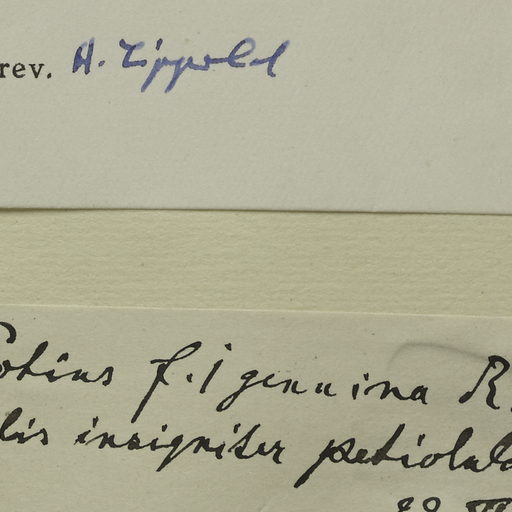 rev. H. Lippold
Potius f. 1 genuina R.
lis insigniter petiolula
22